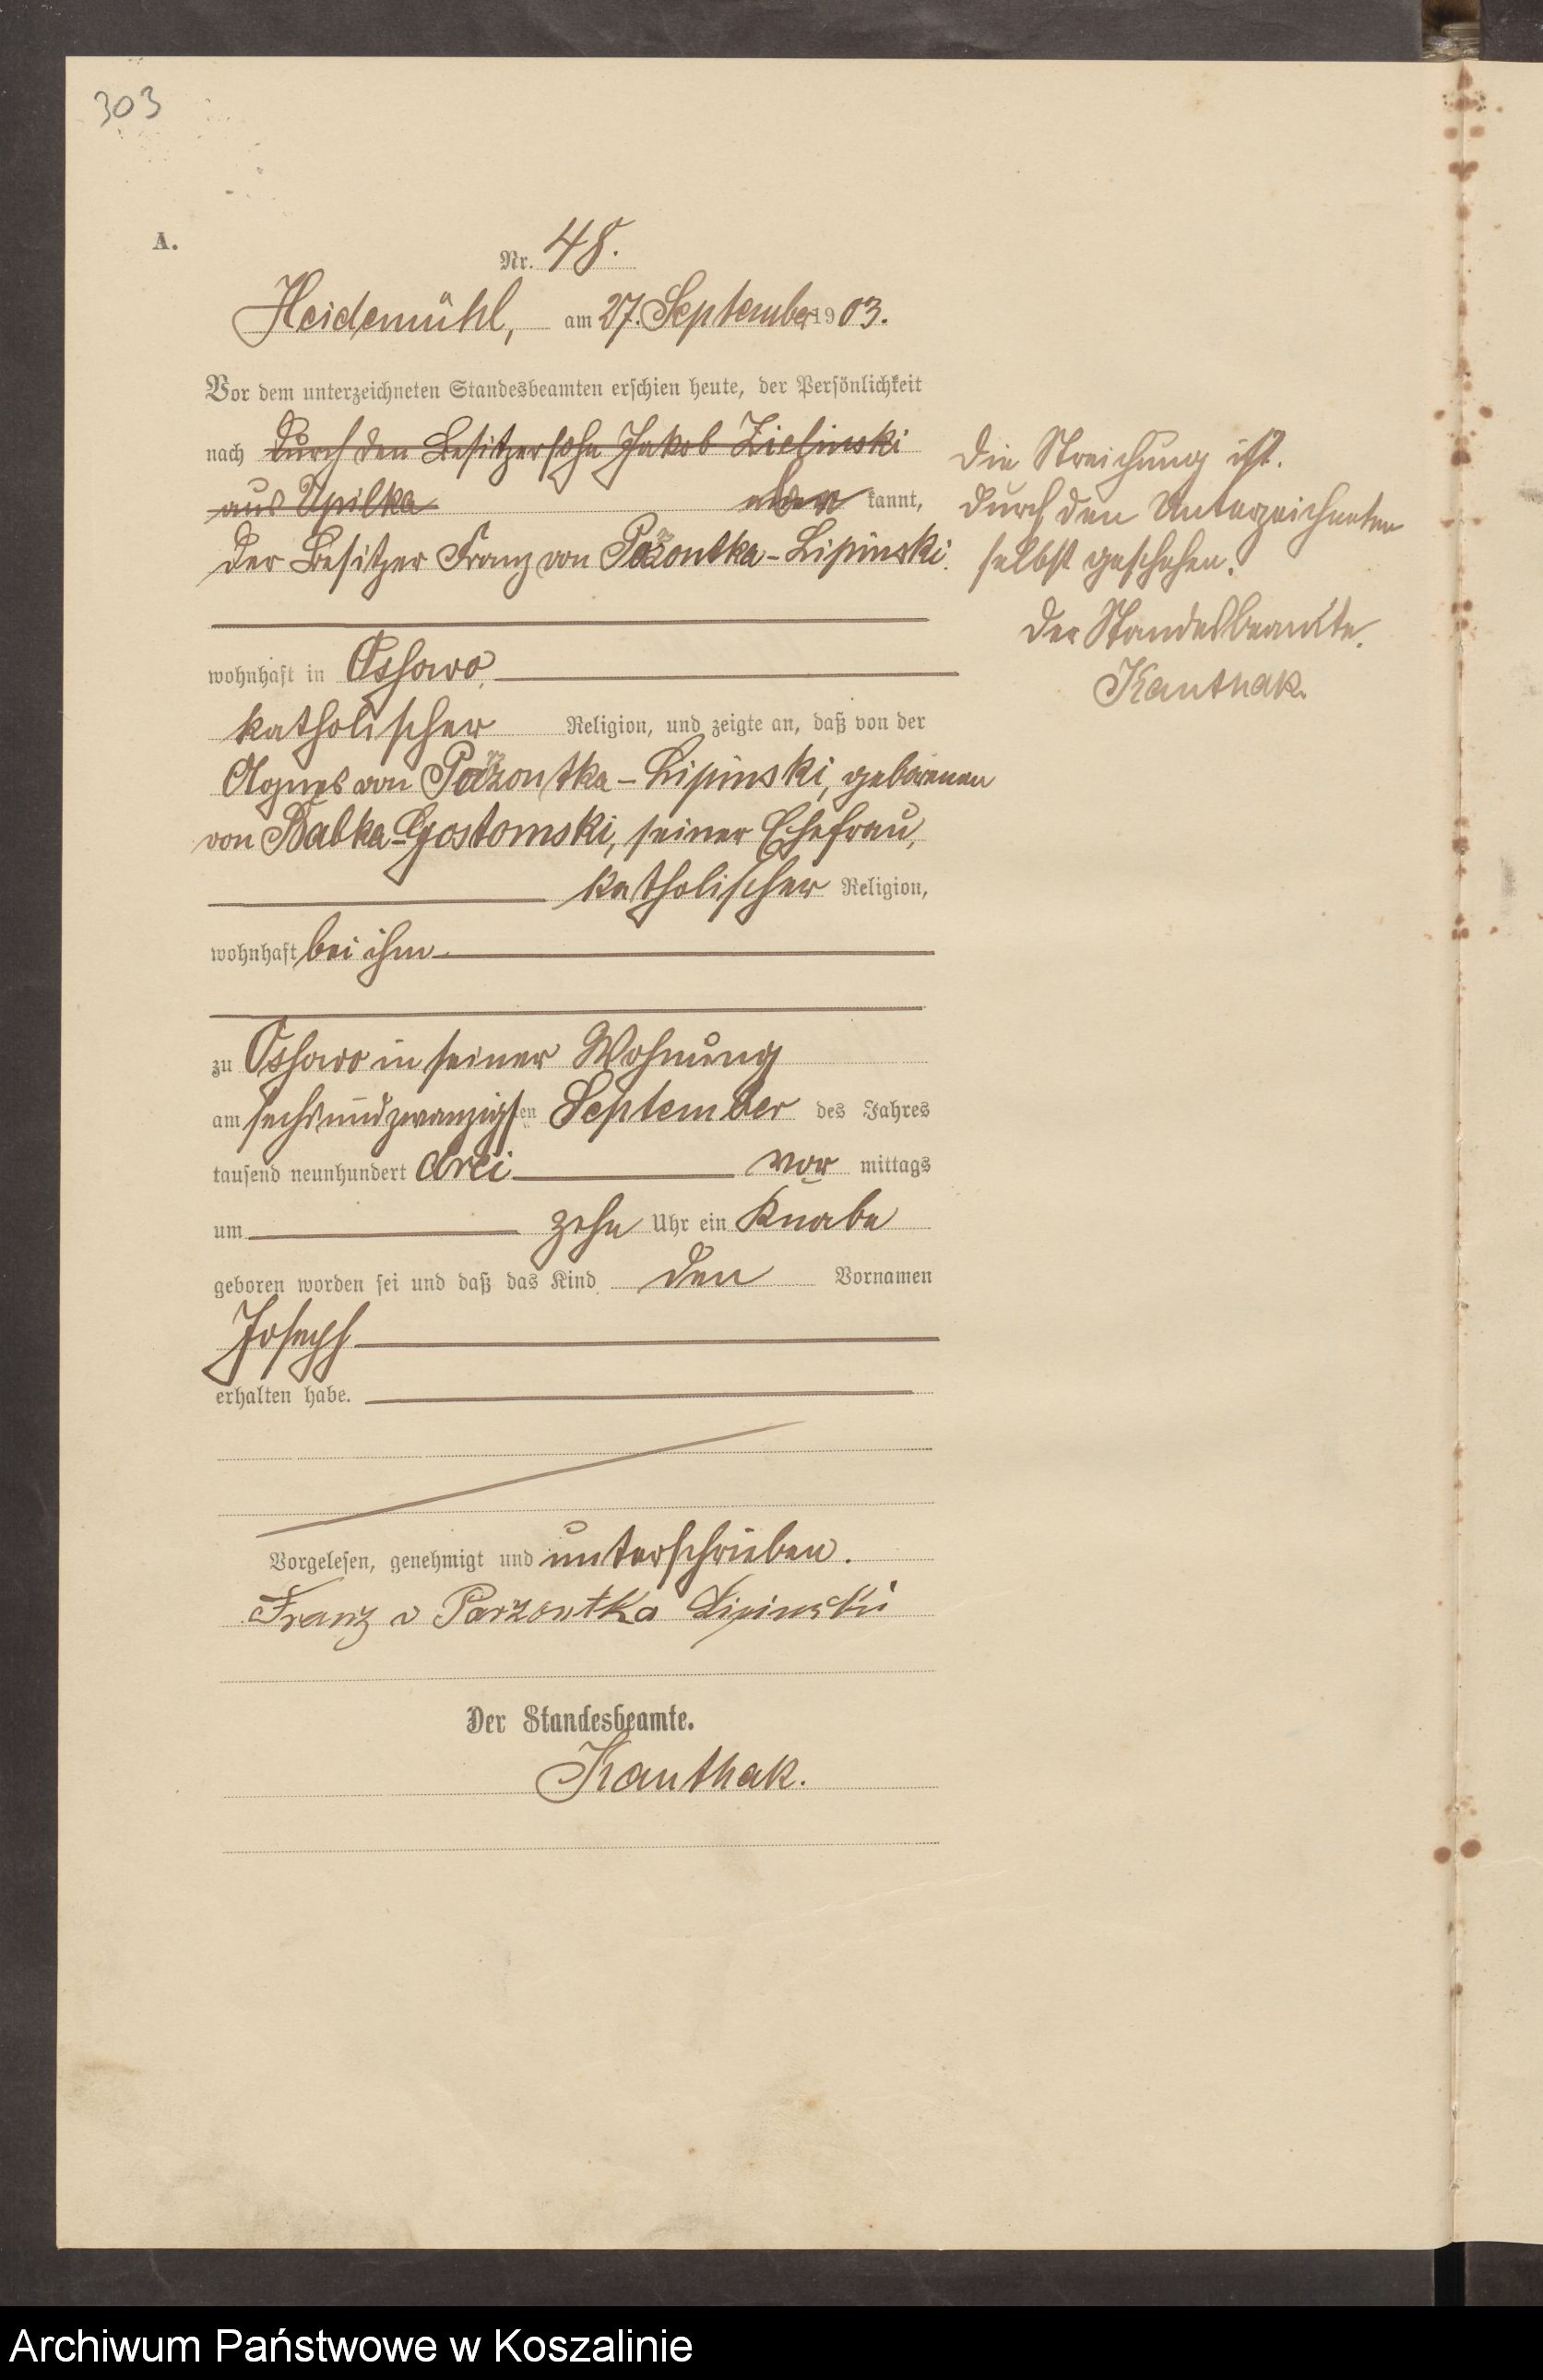 303
A.
Nr. 48.
Heidemühl, am 27. September 1903.
Vor dem unterzeichneten Standesbeamten erschien heute, der Persönlichkeit
nach durch den Besitzersohn Jakob Zielinski
aus Upilka kannt,
der Besitzer Franz von Pażontka-Lipinski.
wohnhaft in Ossowo,
katholischer Religion, und zeigte an, daß von der
Agnes von Pażontka-Lipinski, geborenen
von Babka-Gostomski, seiner Ehefrau,
katholischer Religion,
wohnhaft bei ihm
zu Ossowo in seiner Wohnung
am sechsundzwanzigsten September des Jahres
tausend neunhundert drei vor mittags
um zehn Uhr ein Knabe
geboren worden sei und daß das Kind den Vornamen
Joseph
erhalten habe.
Vorgelesen, genehmigt und unterschrieben.
Franz v Parzontka Lipinski
Der Standesbeamte.
Kanthak.
Die Streichung ist.
durch den Unterzeichneten
selbst geschehen.
Der Standesbeamte.
Kanthak.
Archiwum Państwowe w Koszalinie